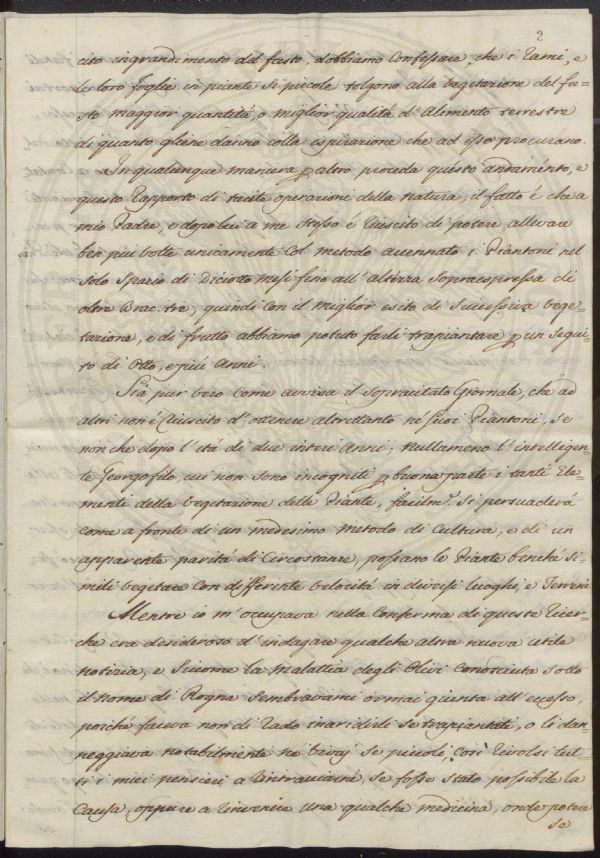 2
cito ingrandimento del fusto, dobbiamo Confessare, che i Rami, e
le loro foglie in piante si piccole tolgono alla vegetazione del fu=
sto maggior quantità, o miglior qualità d'Alimento terrestre
di quanto gliene danno colla espirazione che ad esso procurano.
In qualunque maniera p altro proceda questo andamento, e
questo Rapporto di tacite operazioni della Natura, il fatto è che a
mio Padre, e dopo lui a me stesso è Riuscito di potere allevare
ben più volte unicamente col metodo accennato i Piantoni nel
solo Spazio di Diciotto mesi fino all'altezza Sopraespressa di
oltre Brac. tre, quindi con il miglior esito di Successiva vege=
tazione, e di frutto abbiamo potuto farli trapiantare p un Segui=
to di Otto, e più Anni.
Sia pur vero come avvisa il Sopracitato Giornale, che ad
altri non è Riuscito d'ottenere altrettanto ne' suoi Piantoni, se
non che dopo l'età di due interi Anni; Nullameno l'intelligen=
te Georgofilo, cui non sono incogniti p buona parte i tanti Ele=
menti della Vegetazione delle Piante, facilm.e Si persuaderà
come a fronte di un medesimo Metodo di Cultura, e di un
apparente parità di Circostanze, possano le Piante benchè Si=
mili vegetare Con differente velocità in diversi luoghi, e Terreni.
Mentre io m'occupava nella Conferma di queste Ricer=
che era desideroso d'indagare qualche altra nuova utile
notizia, e Siccome la Malattia degli Olivi Conosciuta Sotto
il nome di Rogna Sembravami ormai giunta all'eccesso,
poichè faceva non di Rado inaridirli Se trapiantati, o li dan=
neggiava notabilmente ne' Vivaj Se piccoli, Così Rivolsi tut=
ti i miei pensieri a Rintracciarne, Se fosse Stato possibile la
Causa, oppure a Rinvenire una qualche medicina, onde potere
se